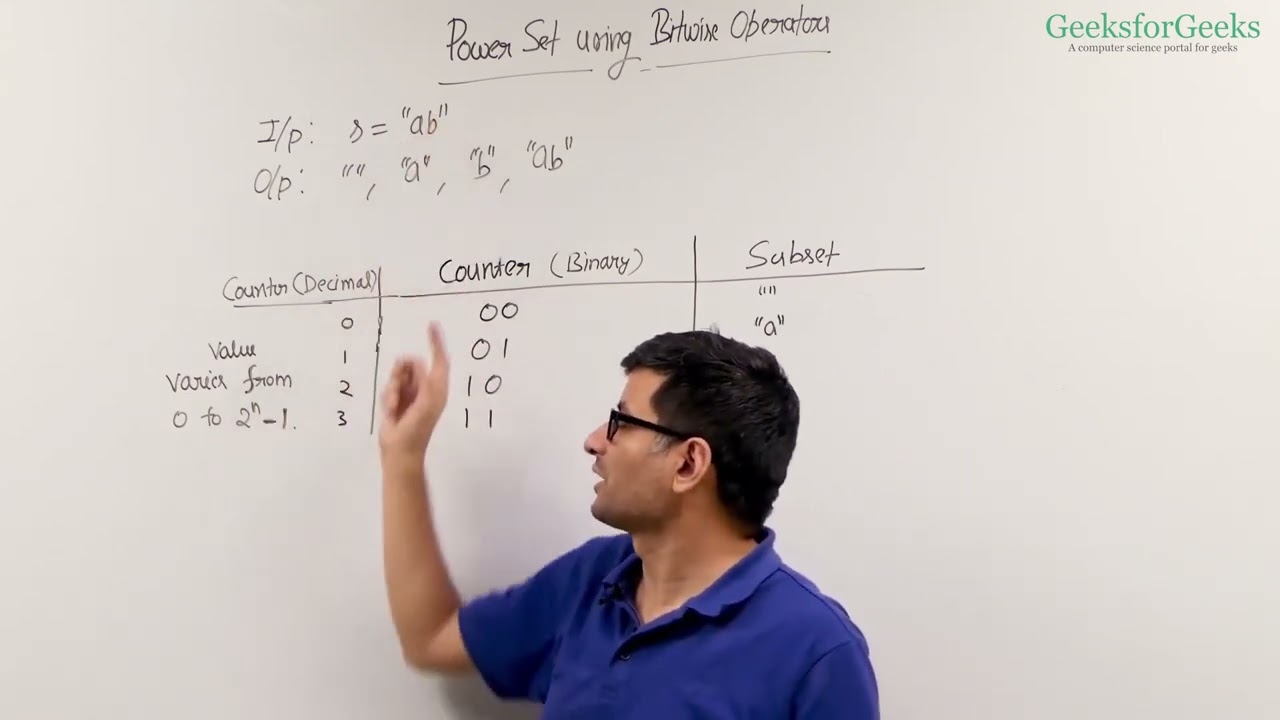 GeeksforGeeks
A computer science portal for geeks
Power Set using Bitwise Operators
I/p: s = "ab"
O/p: "", "a", "b", "ab"
Counter (Decimal) Counter (Binary) Subset
0 00 ""
Value 1 01 "a"
varies from 2 10
0 to 2ⁿ-1. 3 11